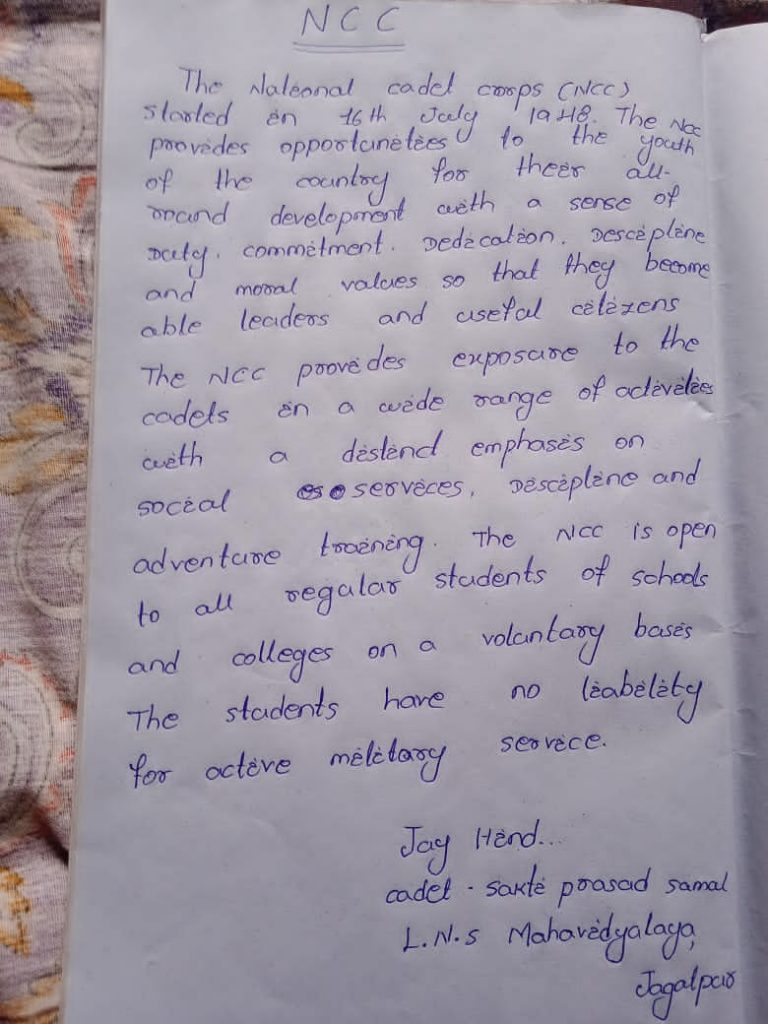 NCC
The National cadet corps (NCC)
started in 16th July 1948. The NCC
provides opportunitees to the youth
of the country for their all-
round development with a sense of
Duty. commitment. Dedication. Desciplene
and moral values so that they become
able leaders and useful citizens
The NCC provides exposure to the
cadets in a wide range of activities
with a distend emphasis on
social services, Disciplene and
adventure training. The NCC is open
to all regular students of schools
and colleges on a voluntary basis
The students have no liability
for active military service.
Jay Hind...
cadet - sakti prasad samal
L.N.S Mahavidyalaya,
Jagalpur